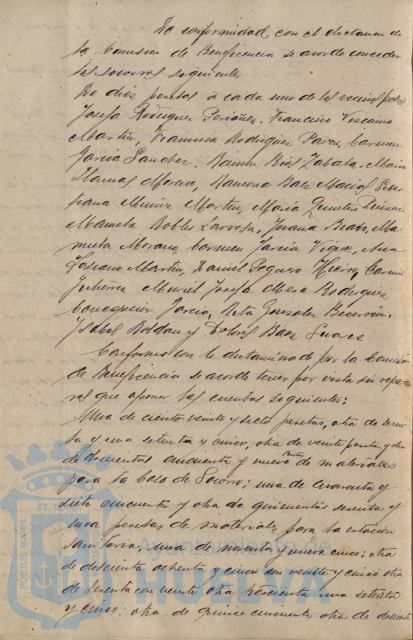 De conformidad con el dictamen de
la Comision de Beneficencia se acordo conceder
los socorros siguiente
De diez pesetas á cada uno de los vecinos pobres
Josefa Rodriguez Periañez, Francisco Toscano
Martin, Francisca Rodriguez Pavon, Carmen
Garcia Sanchez, Ramon Rios Zabala, Maria
Llamas Moreno, Ramona Baez Macias, Sebas
tiana Muñiz Martin, Maria Quintero
Manuela Robles Larrosa, Juana Beato, Ma
nuela Morano, Carmen Garcia Vique, Ana
Toscano Martin, Daniel Peguero Hierro, Carmen
Gutierrez Muriel, Josefa Mora Rodriguez,
Concepcion Garcia, Rita Gonzalez
Isabel Roldan y Dolores Baez Suarez
Conforme con lo dictaminado por la Comision
de Beneficencia se acordo tener por vista sin repa
ros que oponer las cuentas siguientes:
Una de ciento veinte y siete pesetas, otra de
ta y una setenta y cinco, otra de veinte pesetas y otra
de doscientas cincuenta y nueve de materiales
para la casa de Socorro; una de cuarenta y
siete cincuenta y otra de quinientas sesenta y
una pesetas de material para la estacion
sanitaria; una de noventa y nueve cinco; otra
de doscientas ochenta y cinco con veinte y cinco otra
de setenta con veinte otra trescientas una setenta
y cinco; otra de quince cincuenta otra de
Ayuntamiento de
HUELVA
PORTUS MARIS